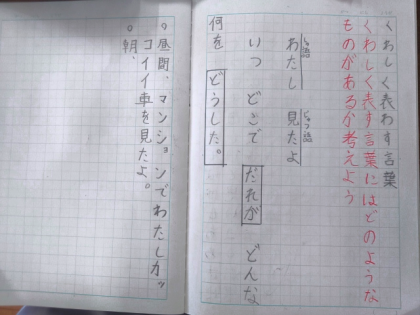 くわしく表わす言葉
くわしく表す言葉にはどのような
ものがあるか考えよう
しゅ語 じゅつ語
わたし 見たよ
いつ どこで だれが どんな
何を どうした。
。昼間、マンションでわたしカッ
コイイ車を見たよ。
。朝、